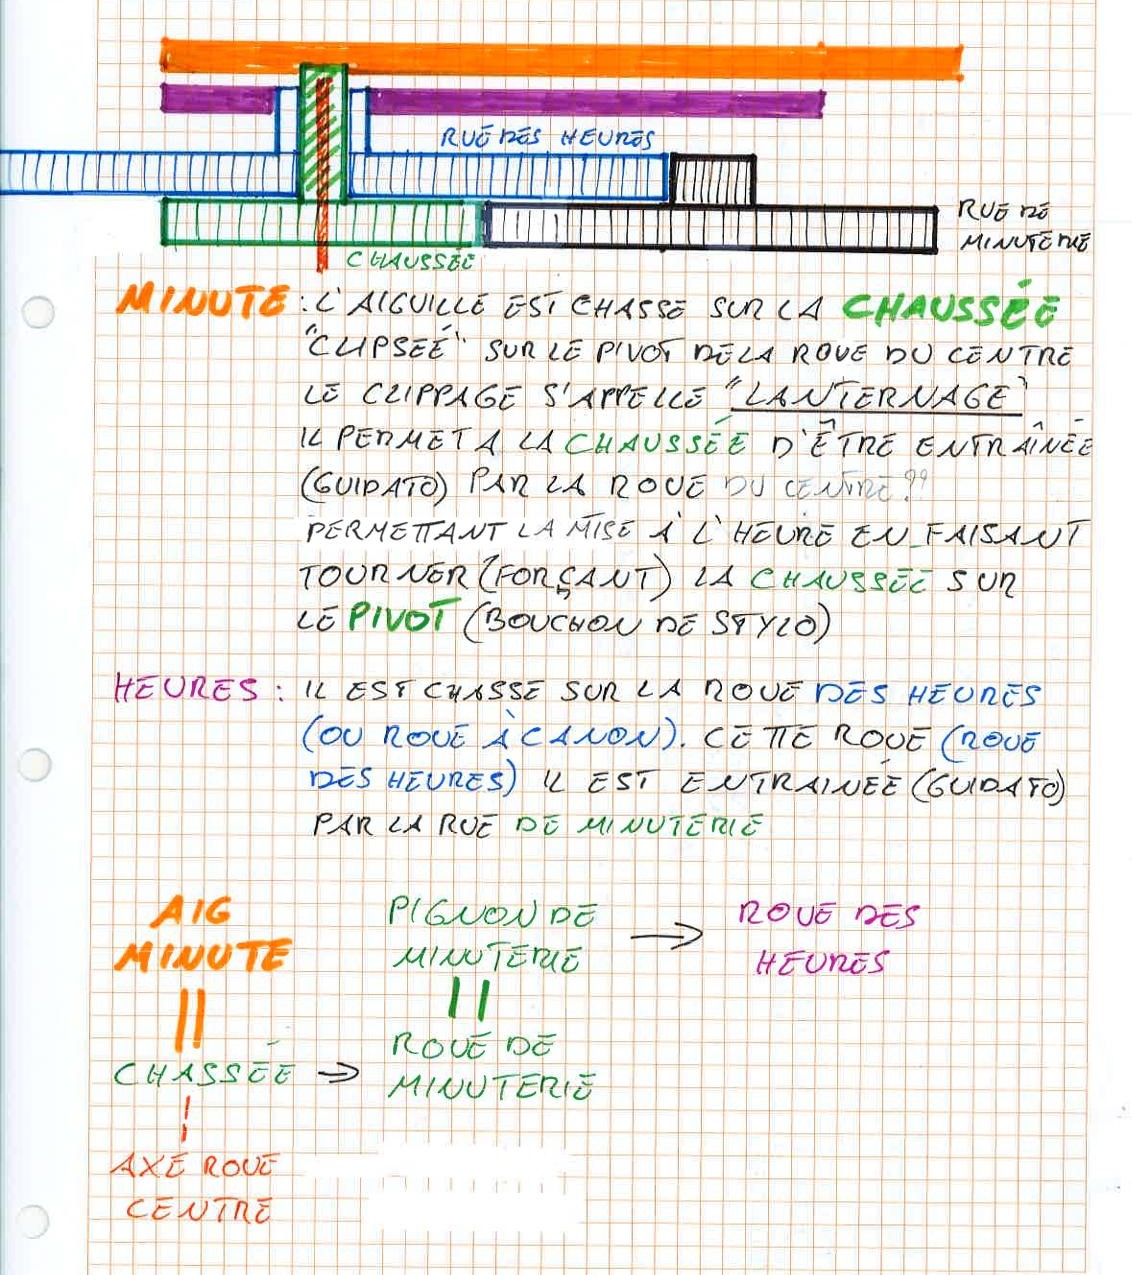 RUE DES HEURES
RUE DE
MINUTERIE
CHAUSSÉE
MINUTE : L'AIGUILLE EST CHASSE SUR LA CHAUSSÉE
"CLIPSEÉ" SUR LE PIVOT DE LA ROUE DU CENTRE
LE CLIPPAGE S'APPELLE "LANTERNAGE"
IL PERMET A LA CHAUSSÉE D'ÊTRE ENTRAÎNÉE
(GUIDATO) PAR LA ROUE DU CENTRE??
PERMETTANT LA MISE À L'HEURE EN FAISANT
TOURNER (FORÇANT) LA CHAUSSÉE SUR
LE PIVOT (BOUCHON DE STYLO)
HEURES : IL EST CHASSE SUR LA ROUE DES HEURES
(OU ROUE À CANON). CETTE ROUE (ROUE
DES HEURES) IL EST ENTRAINÉE (GUIDATO)
PAR LA RUE DE MINUTERIE
AIG
MINUTE
PIGNON DE
MINUTERIE
→ ROUE DES
HEURES
ROUE DE
MINUTERIE
CHASSÉE →
AXE ROUE
CENTRE